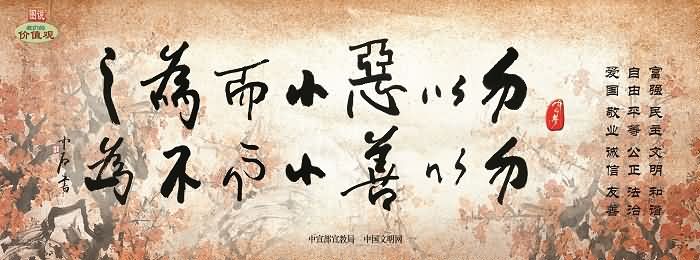 富强民主文明和谐
自由平等公正法治
爱国敬业诚信友善
勿以惡小而為之
勿以善小而不為
图说
我们的
价值观
中宣部宣教局 中国文明网